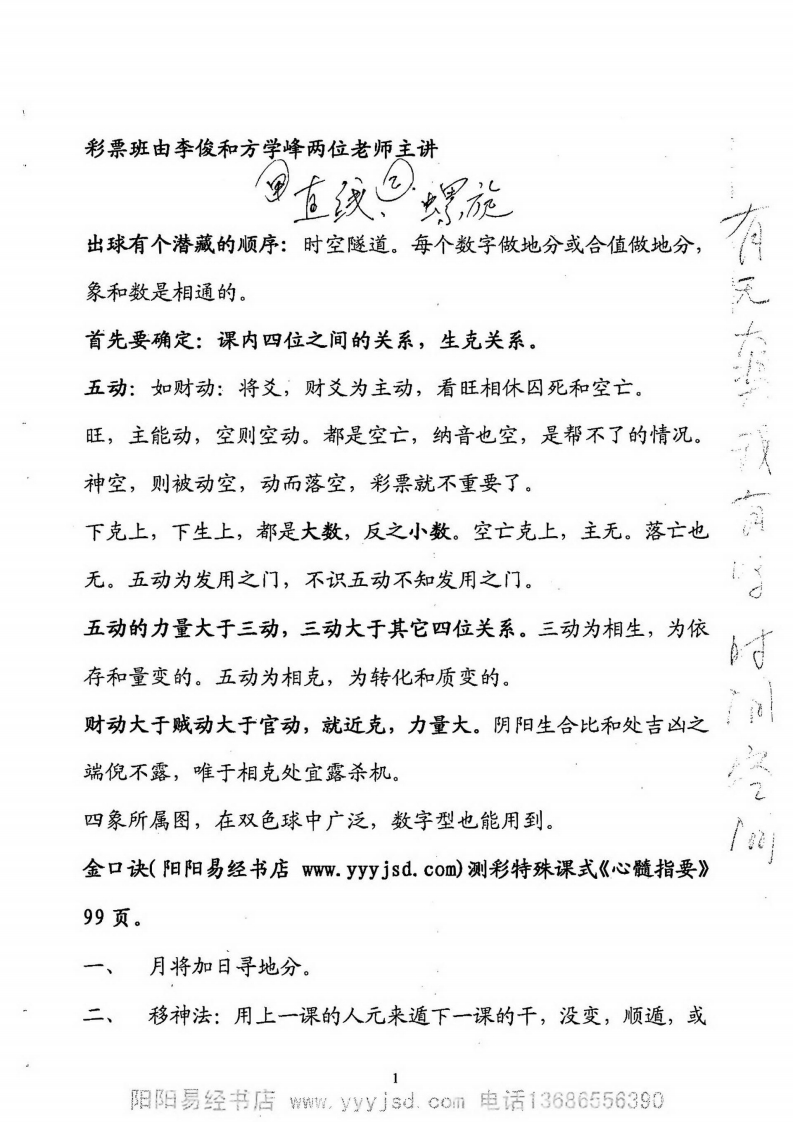 彩票班由李俊和方学峰两位老师主讲
直线、 螺旋
出球有个潜藏的顺序：时空隧道。每个数字做地分或合值做地分，
象和数是相通的。
首先要确定：课内四位之间的关系，生克关系。
五动：如财动：将爻，财爻为主动，看旺相休囚死和空亡。
旺，主能动，空则空动。都是空亡，纳音也空，是帮不了的情况。
神空，则被动空，动而落空，彩票就不重要了。
下克上，下生上，都是大数，反之小数。空亡克上，主无。落亡也
无。五动为发用之门，不识五动不知发用之门。
五动的力量大于三动，三动大于其它四位关系。三动为相生，为依
存和量变的。五动为相克，为转化和质变的。
财动大于贼动大于官动，就近克，力量大。阴阳生合比和处吉凶之
端倪不露，唯于相克处宜露杀机。
四象所属图，在双色球中广泛，数字型也能用到。
金口诀(阳阳易经书店 www.yyyjsd.com)测彩特殊课式《心髓指要》
99 页。
一、 月将加日寻地分。
二、 移神法：用上一课的人元来遁下一课的干，没变，顺遁，或
有无 时间空间
1
阳阳易经书店 www.yyyjsd.com 电话13686556390